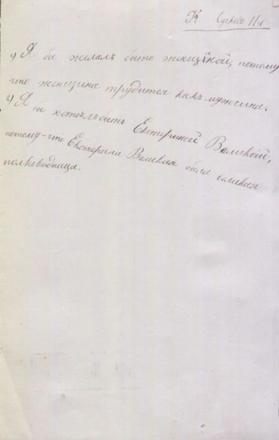 К Сурков 11 л
1) Я бы желалъ быть женщиной, потому
что женщина трудится какъ мужчина.
2) Я бы хотелъ быть Екатериной Великой,
потому-что Екатерина Великая была великая
полководица.